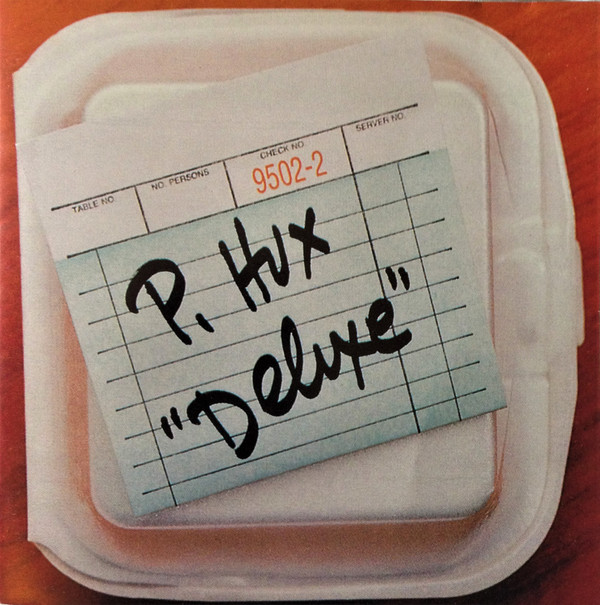 TABLE NO. NO. PERSONS CHECK NO. SERVER NO.
9502-2
P. Hux
"Deluxe"